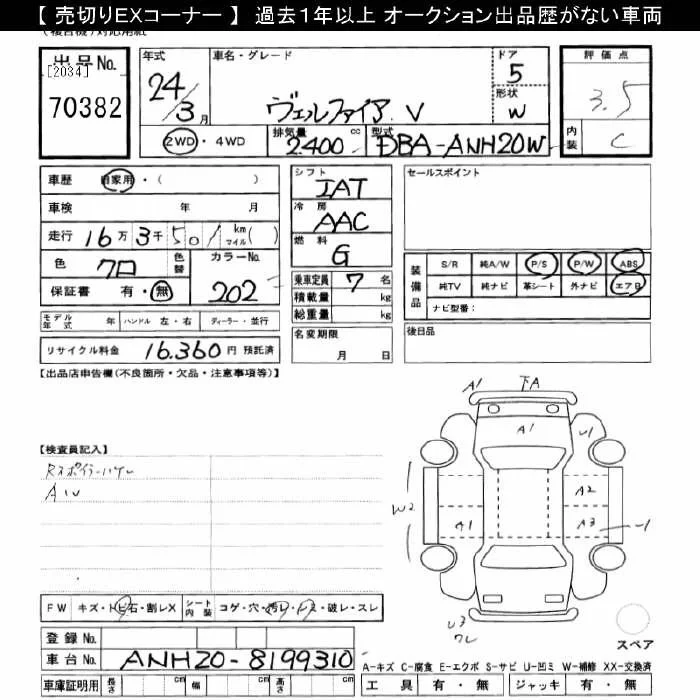 【 売切りEXコーナー 】 過去1年以上 オークション出品歴がない車両
(複合機) 対応用紙
出品No.
[2034]
70382
年式
24/3月
車名・グレード
ヴェルファイア V
ドア
5
形状
W
評価点
3.5
内装
C
2WD・4WD
排気量
2400cc
型式
DBA-ANH20W
車歴 自家用・( )
車検 年 月
走行 16万3千501 km マイル( )
色 クロ
色替
カラーNo.
202
保証書 有・無
モデル年式 年 ハンドル 左・右 ディーラー・並行
リサイクル料金 16,360円 預託済
シフト
IAT
冷房
AAC
燃料
G
乗車定員 7名
積載量 kg
総重量 kg
名変期限
月 日
セールスポイント
装備品
S/R 純A/W P/S P/W ABS
純TV 純ナビ 革シート 外ナビ エアB
ナビ型番:
後日品
【出品店申告欄(不良箇所・欠品・注意事項等)】
【検査員記入】
Rスポイラーハゲ
AIU
A1 下A
A1
U1
A2
W2
A1
A3
U3
ワレ
スペア
FW キズ・トビ石・割レX シート内装 コゲ・穴・汚レ・スミ・破レ・スレ
登録No.
車台No. ANH20-8199310
車庫証明用 長さ cm 幅 cm 高さ cm
A-キズ C-腐食 E-エクボ S-サビ U-凹ミ W-補修 XX-交換済
工具 有・無 ジャッキ 有・無